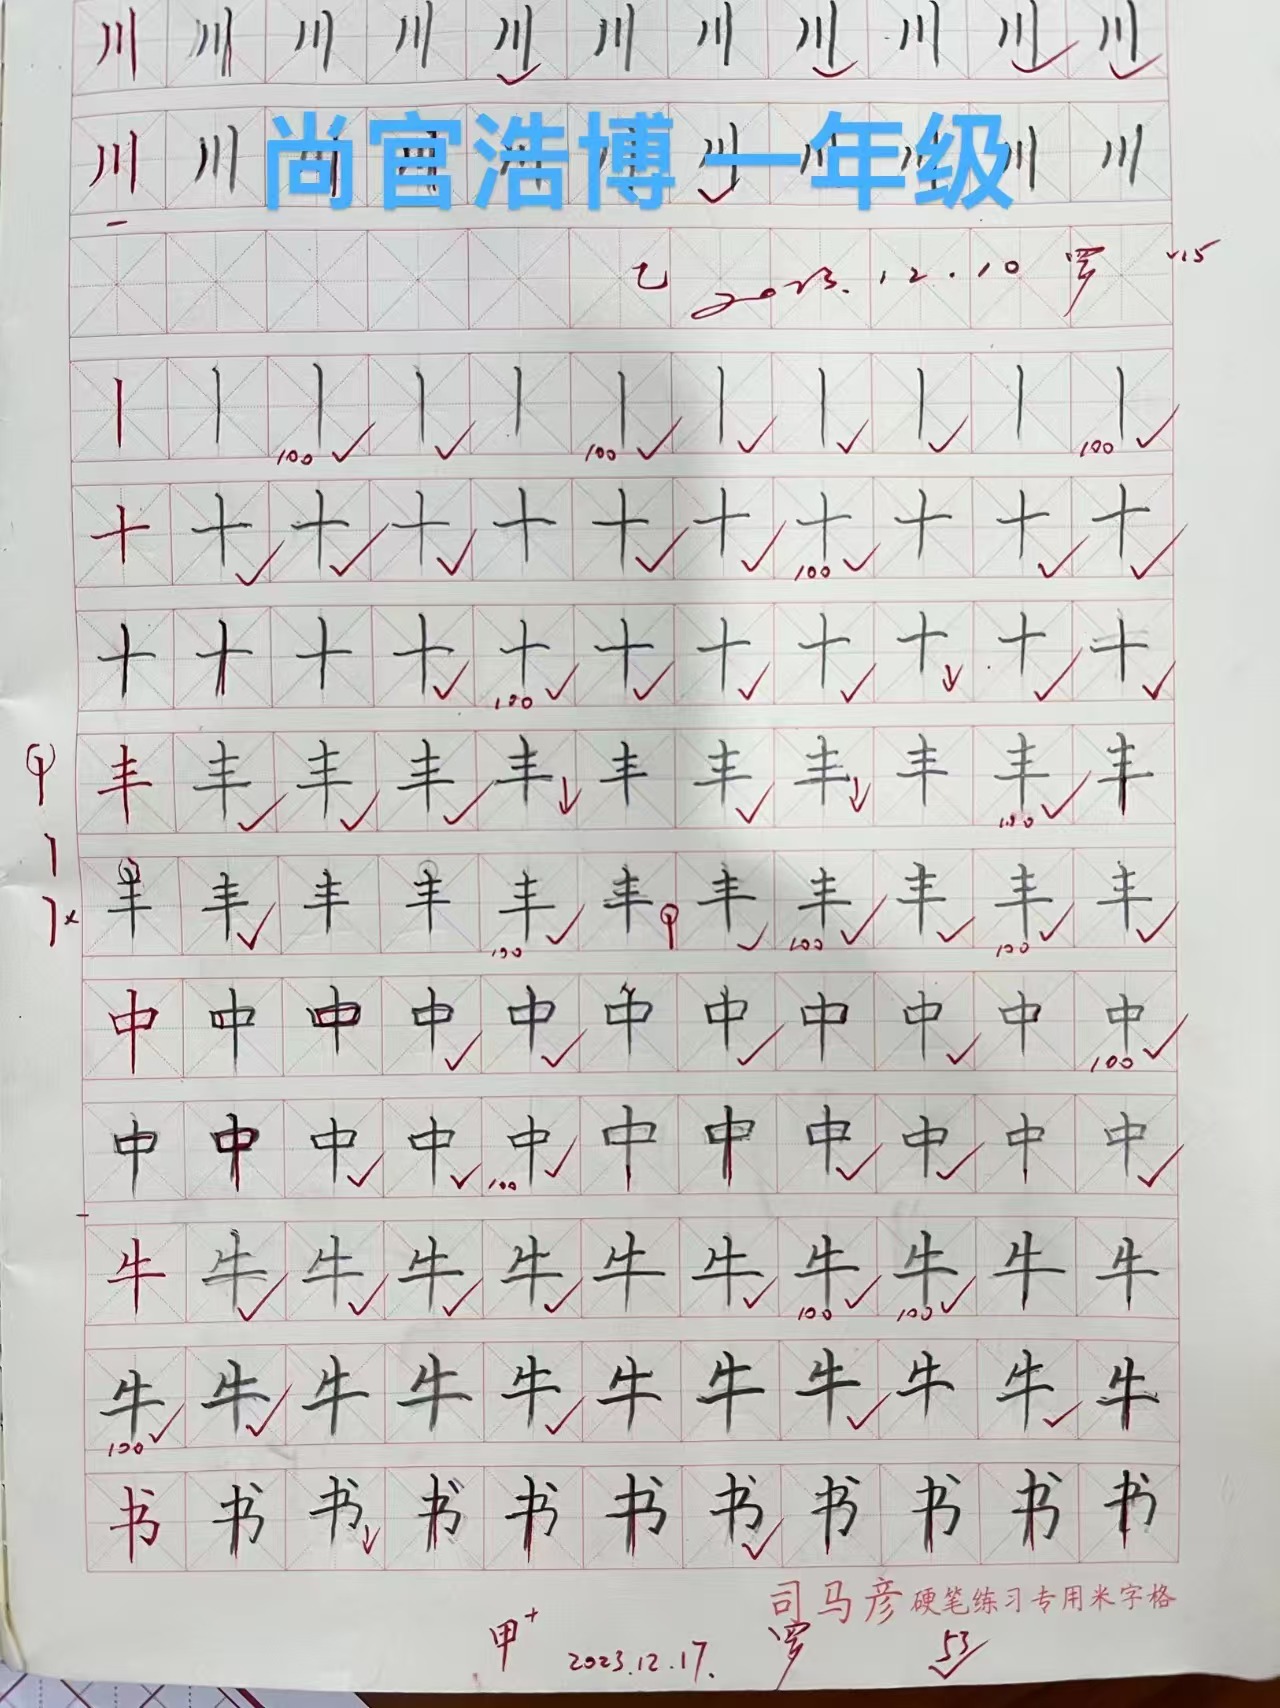 川 川 川 川 川 川 川 川 川 川 川
川 川 川 川 川 川 川 川 川 川 川
尚官浩博 一年级
乙 2023.12.10 罗 √15
丨 丨 丨 丨 丨 丨 丨 丨 丨 丨 丨
100 100 100
十 十 十 十 十 十 十 十 十 十 十
100
十 十 十 十 十 十 十 十 十 十 十
100
丰 丰 丰 丰 丰 丰 丰 丰 丰 丰 丰
100
丰 丰 丰 丰 丰 丰 丰 丰 丰 丰 丰
100 100 100
中 中 中 中 中 中 中 中 中 中 中
100
中 中 中 中 中 中 中 中 中 中 中
100
牛 牛 牛 牛 牛 牛 牛 牛 牛 牛 牛
100 100
牛 牛 牛 牛 牛 牛 牛 牛 牛 牛 牛
100
书 书 书 书 书 书 书 书 书 书 书
司马彦 硬笔练习专用米字格
甲+ 2023.12.17. 罗 53